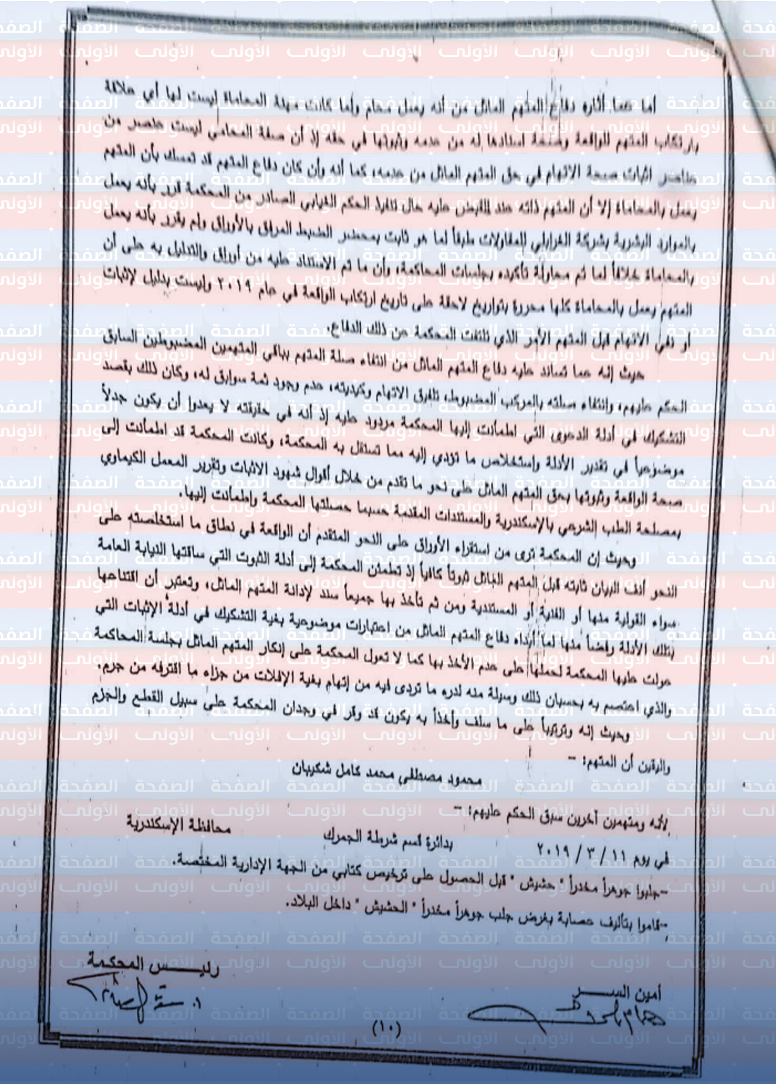 أما عما أثاره دفاع المتهم الماثل من أنه يعمل محام وأما كانت مهنة المحاماة ليست لها أي علاقة
بارتكاب المتهم للواقعة وصحة اسنادها له من عدمه وثبوتها في حقه إذ أن صفة المحامي ليست عنصر من
عناصر اثبات صحة الاتهام في حق المتهم الماثل من عدمه، كما أنه وأن كان دفاع المتهم قد تمسك بأن المتهم
يعمل بالمحاماة إلا أن المتهم ذاته عند القبض عليه حال تنفيذ الحكم الغيابي الصادر من المحكمة قرر بأنه يعمل
بالموارد البشرية بشركة الغرابلي للمقاولات طبقاً لما هو ثابت بمحضر الضبط المرفق بالأوراق ولم يقرر بأنه يعمل
بالمحاماة خلافاً لما تم محاولة تأكيده بجلسات المحاكمة، وأن ما تم الاستناد عليه من أوراق والتدليل به على أن
المتهم يعمل بالمحاماة كلها محررة بتواريخ لاحقة على تاريخ ارتكاب الواقعة في عام ٢٠١٩ وليست بدليل لإثبات
أو نفي الاتهام قبل المتهم الأمر الذي تلتفت المحكمة عن ذلك الدفاع.
حيث إنه عما تساند عليه دفاع المتهم الماثل من انتفاء صلة المتهم بباقي المتهمين المضبوطين السابق
الحكم عليهم، وانتفاء صلته بالمركب المضبوط، تلفيق الاتهام وكيديته، عدم وجود ثمة سوابق له، وكان ذلك بقصد
التشكيك في أدلة الدعوى التي اطمأنت إليها المحكمة مردود عليه إذ أنه في حقيقته لا يعدوا أن يكون جدلاً
موضوعياً في تقدير الأدلة وإستخلاص ما تؤدي إليه مما تستقل به المحكمة، وكانت المحكمة قد اطمأنت إلى
صحة الواقعة وثبوتها بحق المتهم الماثل على نحو ما تقدم من خلال أقوال شهود الاثبات وتقرير المعمل الكيماوي
بمصلحة الطب الشرعي بالإسكندرية والمستندات المقدمة حسبما حصلتها المحكمة واطمأنت إليها.
وحيث إن المحكمة ترى من استقراء الأوراق على النحو المتقدم أن الواقعة في نطاق ما استخلصته على
النحو آنف البيان ثابته قبل المتهم الماثل ثبوتاً كافياً إذ تطمئن المحكمة إلى أدلة الثبوت التي ساقتها النيابة العامة
سواء القولية منها أو الفنية أو المستندية ومن ثم تأخذ بها جميعاً سند لإدانة المتهم الماثل، وتعتبر أن اقتناعها
بتلك الأدلة رفضاً منها لما أبداه دفاع المتهم الماثل من اعتبارات موضوعية بغية التشكيك في أدلة الإثبات التي
عولت عليها المحكمة لحملها على عدم الأخذ بها كما لا تعول المحكمة على إنكار المتهم الماثل بجلسة المحاكمة
والذي اعتصم به بحسبان ذلك وسيلة منه لدره ما تردى فيه من إتهام بغية الإفلات من جزاء ما اقترفه من جرم.
وحيث إنه وترتيباً على ما سلف وأخذاً به يكون قد وقر في وجدان المحكمة على سبيل القطع والجزم
واليقين أن المتهم: –
محمود مصطفى محمد كامل شكيبان
لأنه ومتهمين آخرين سبق الحكم عليهم: –
في يوم ١١ / ٣ / ٢٠١٩ بدائرة قسم شرطة الجمرك محافظة الإسكندرية
-جلبوا جوهراً مخدراً " حشيش " قبل الحصول على ترخيص كتابي من الجهة الإدارية المختصة.
-قاموا بتأليف عصابة بغرض جلب جوهراً مخدراً " الحشيش " داخل البلاد.
أمين السر رئيس المحكمة
(١٠)
الصفحة الأولى